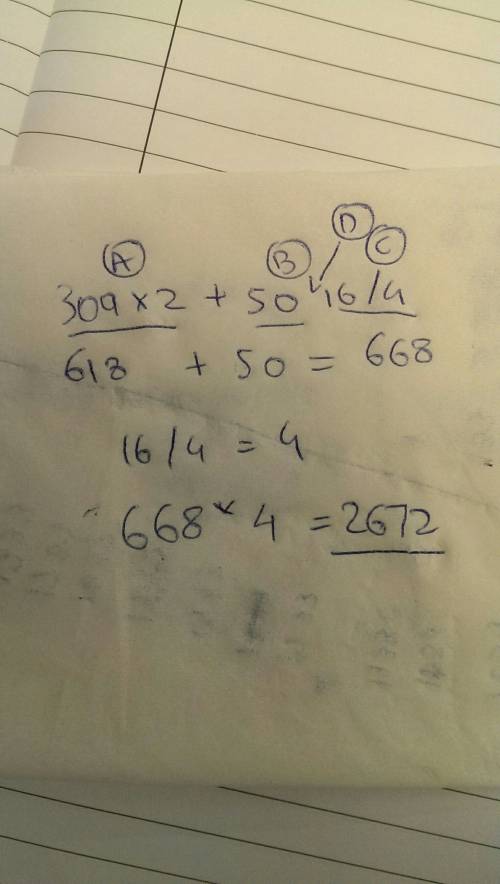 D
A B C
309 × 2 + 50 * 16/4
618 + 50 = 668
16/4 = 4
668 * 4 = 2672